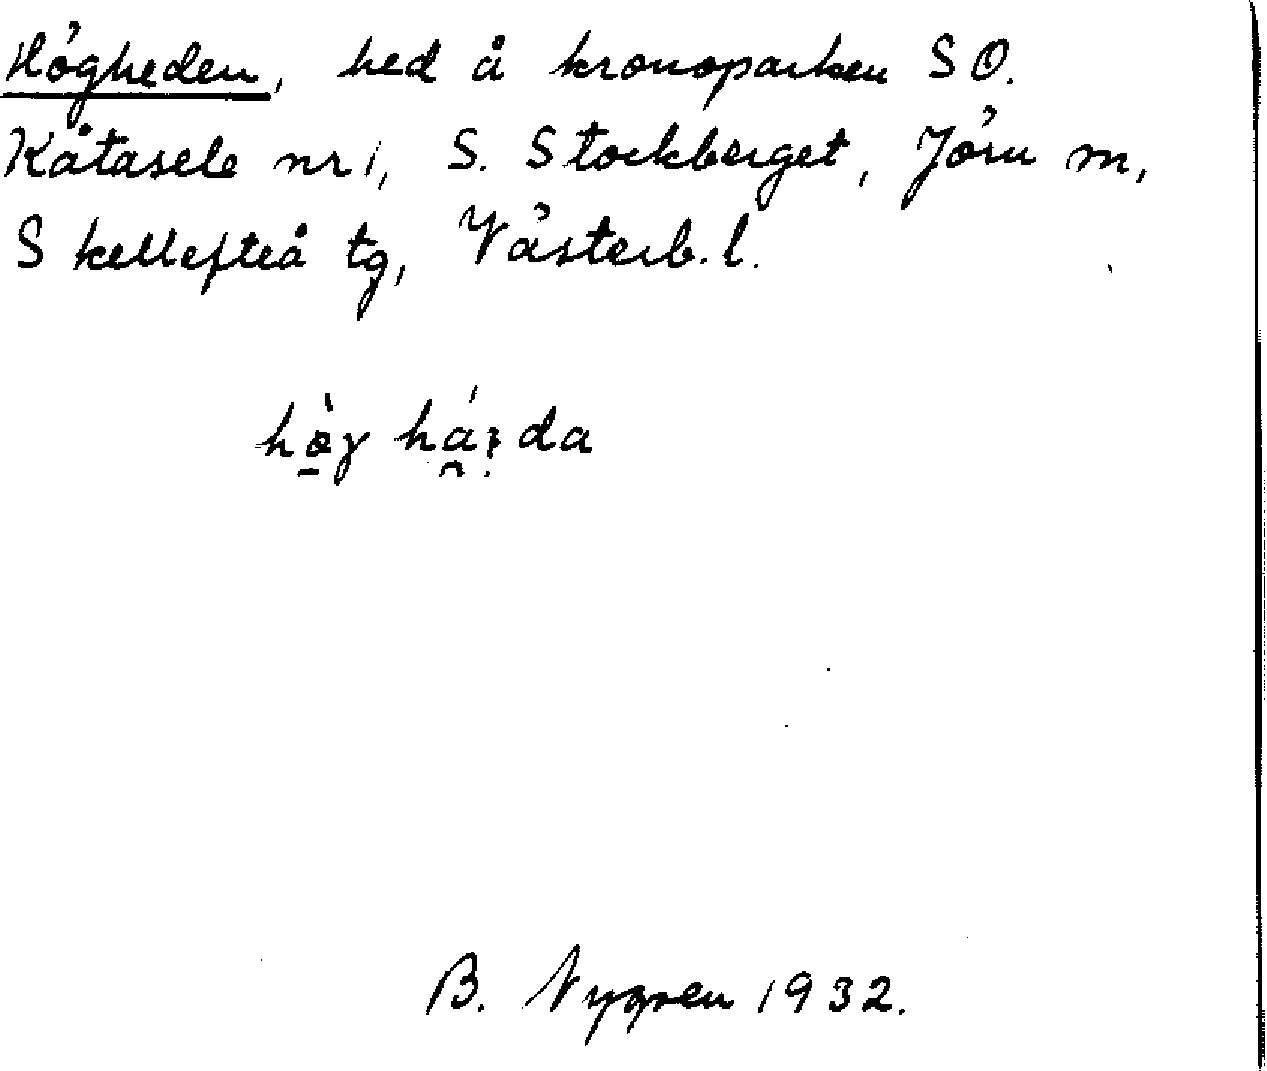 Högheden, hed å kronoparken SO.
Kåtasele nr 1, S. Stockberget, Jörn m,
Skellefteå tg, Västerb. l.
B. Nygren 1932.